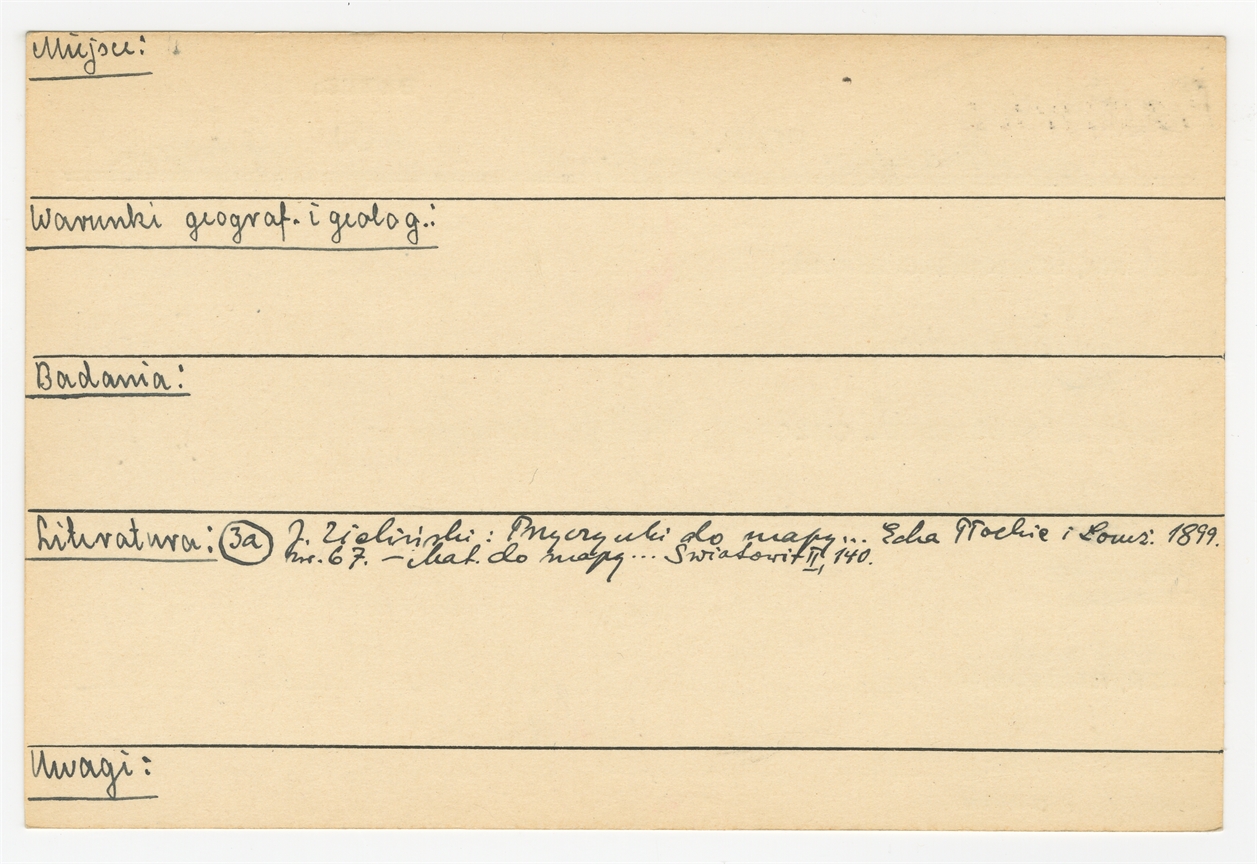 Miejsce:
Warunki geograf. i geolog.:
Badania:
Literatura: 3a J. Zieliński: Przyczynki do mapy... Echa Płockie i Łomż. 1899.
nr. 67. – Mat. do mapy... Światowit II, 140.
Uwagi: